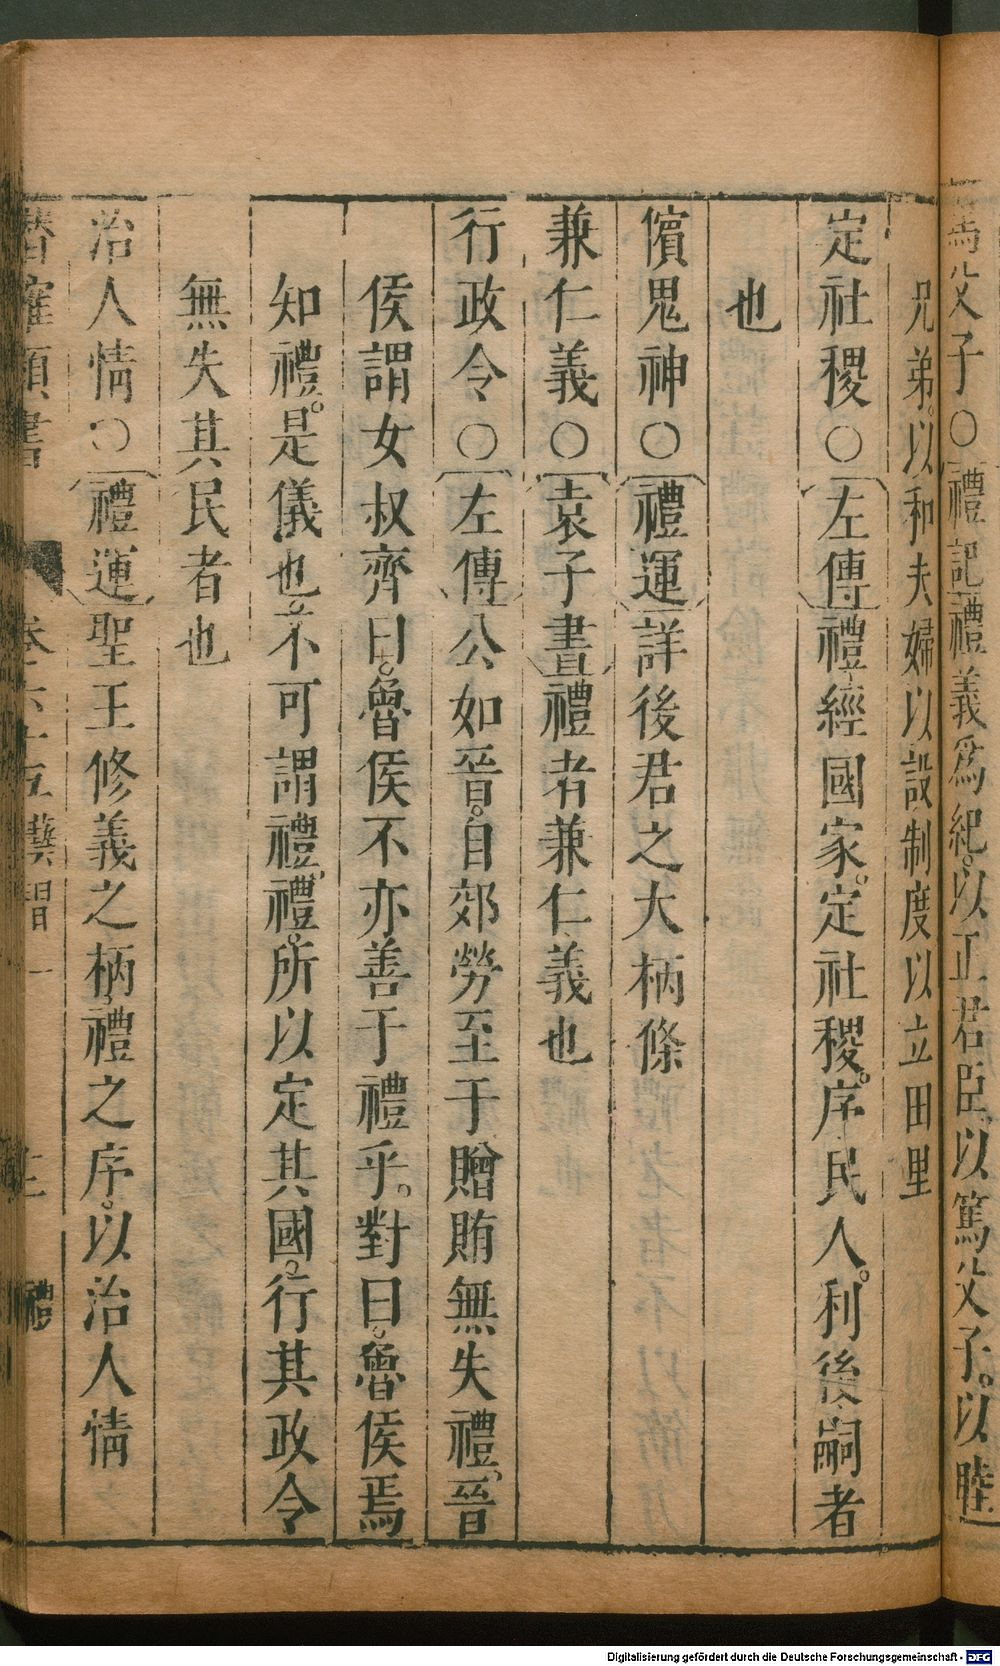 爲父子○禮記禮義爲紀以正君臣以篤父子以睦
兄弟以和夫婦以設制度以立田里
定社稷○左傳禮經國家定社稷序民人利後嗣者
也
儐鬼神○禮運詳後君之大柄條
兼仁義○袁子書禮者兼仁義也
行政令○左傳公如晉自郊勞至于贈賄無失禮晉
侯謂女叔齊曰魯侯不亦善于禮乎對曰魯侯焉
知禮是儀也不可謂禮禮所以定其國行其政令
無失其民者也
治人情○禮運聖王修義之柄禮之序以治人情
潛確類書 卷六十五 藝習一 禮
Digitalisierung gefördert durch die Deutsche Forschungsgemeinschaft - DFG